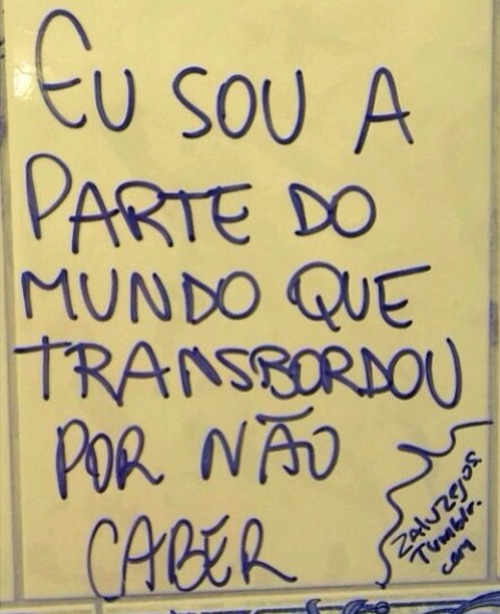 EU SOU A
PARTE DO
MUNDO QUE
TRANSBORDOU
POR NÃO
CABER
zaluzejos.
Tumblr.
com